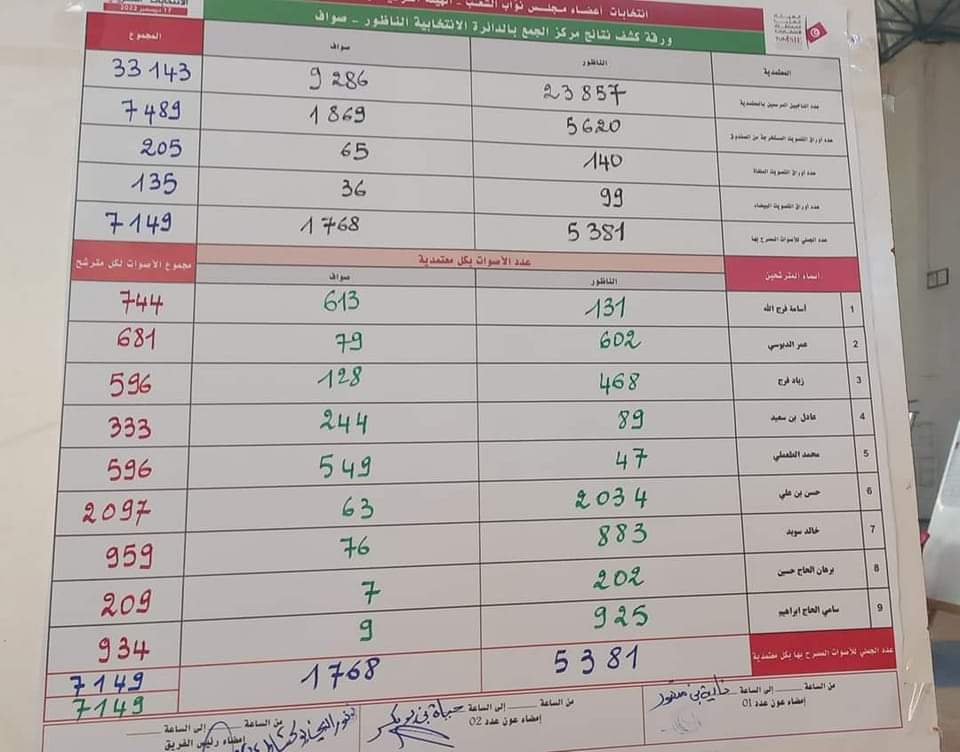 17 ديسمبر 2022
انتخابات أعضاء مجلس نواب الشعب -
ISIE
ورقة كشف نتائج مركز الجمع بالدائرة الانتخابية الناظور - صواف
المعتمدية الناظور صواف المجموع
عدد الناخبين المرسمين بالمعتمدية 23857 9286 33143
عدد أوراق التصويت المستخرجة من الصندوق 5620 1869 7489
عدد أوراق التصويت الملغاة 140 65 205
عدد أوراق التصويت البيضاء 99 36 135
عدد الجملي للأصوات المصرح بها 5381 1768 7149
أسماء المترشحين عدد الأصوات بكل معتمدية مجموع الأصوات لكل مترشح
الناظور صواف
1 أسامة فرج الله 131 613 744
2 عمر الدبوسي 602 79 681
3 زياد فرج 468 128 596
4 عادل بن سعيد 89 244 333
5 محمد الطعملي 47 549 596
6 حسن بن علي 2034 63 2097
7 خالد سويد 883 76 959
8 برهان الحاج حسين 202 7 209
9 سامي الحاج ابراهيم 925 9 934
عدد الجملي للأصوات المصرح بها بكل معتمدية 5381 1768 7149
7149
من الساعة إلى الساعة من الساعة إلى الساعة من الساعة إلى الساعة
إمضاء عون عدد 01 إمضاء عون عدد 02 إمضاء رئيس الفريق